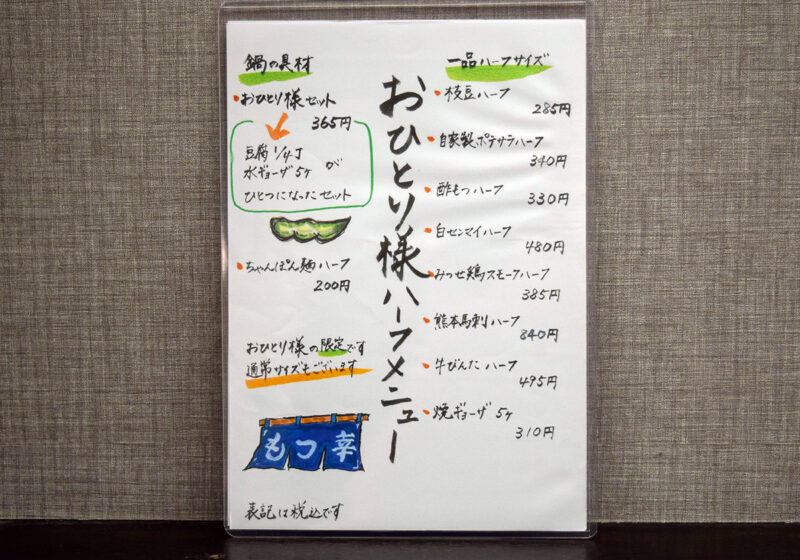 おひとり様ハーフメニュー
一品ハーフサイズ
・枝豆ハーフ
285円
・自家製ポテサラハーフ
340円
・酢もつハーフ
330円
・白センマイハーフ
480円
・みつせ鶏スモークハーフ
385円
・熊本馬刺ハーフ
840円
・牛びんたハーフ
495円
・焼ギョーザ5ヶ
310円
鍋の具材
・おひとり様セット
365円
豆腐1/4丁
水ギョーザ5ヶ が
ひとつになったセット
・ちゃんぽん麺ハーフ
200円
おひとり様の限定です
通常サイズもございます
もつ幸
表記は税込です